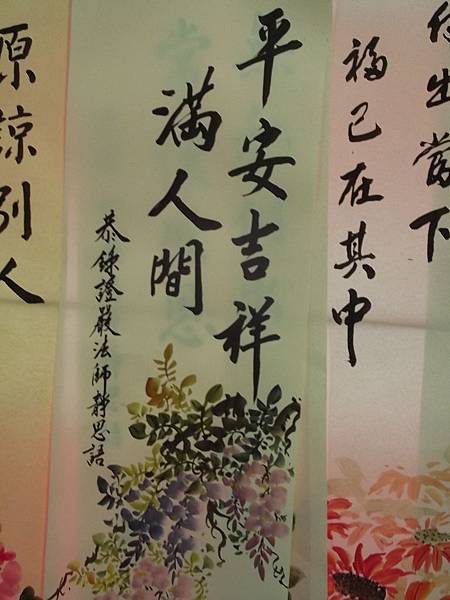 付出當下
福已在其中
平安吉祥
滿人間
恭錄證嚴法師靜思語
原諒別人